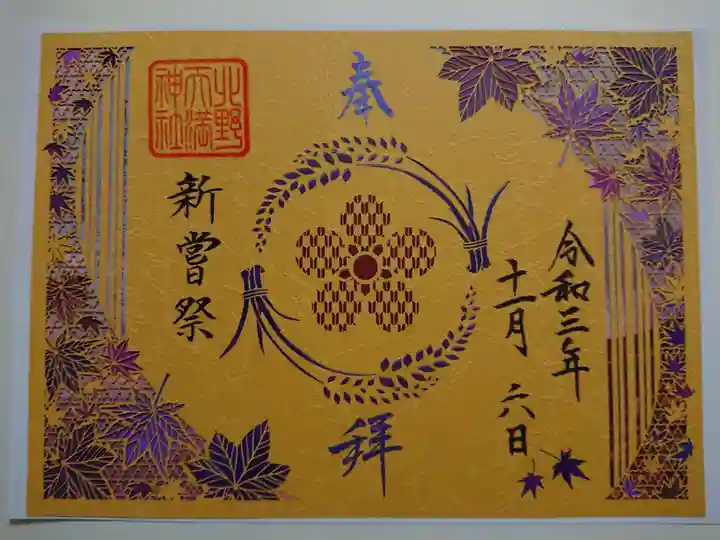 奉
拜
令和三年
十一月 六日
北野
天満
神社
新嘗祭